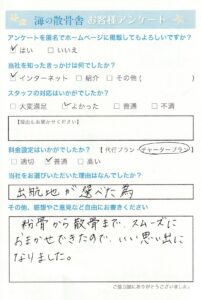 海の散骨舎 お客様アンケート
アンケートを匿名でホームページに掲載してもよろしいですか?
✓はい □いいえ
当社を知ったきっかけは何でしたか?
✓インターネット □紹介 □その他( )
スタッフの対応はいかがでしたか?
□大変満足 ✓よかった □普通 □不満
【理由もお聞かせください】
料金設定はいかがでしたか?【代行プラン・チャータープラン】
□適切 ✓普通 □高い
当社をお選びいただいた理由はなんでしたか?
出航地が選べた為
その他、感想やご意見など自由にお書きください
粉骨から散骨まで、スムーズに
おまかせできたので、いい思い出に
なりました。
ご協力誠にありがとうございました。